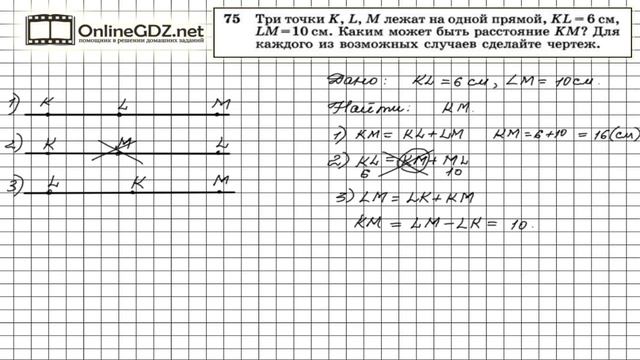 OnlineGDZ.net
помощник в решении домашних заданий
75 Три точки K, L, M лежат на одной прямой, KL = 6 см,
LM = 10 см. Каким может быть расстояние KM? Для
каждого из возможных случаев сделайте чертеж.
1) K L M
2) K M L
3) L K M
Дано: KL = 6 см, LM = 10 см.
Найти: KM.
1) KM = KL + LM KM = 6 + 10 = 16 (см)
2) KL = KM + ML
6 10
3) LM = LK + KM
KM = LM - LK = 10.